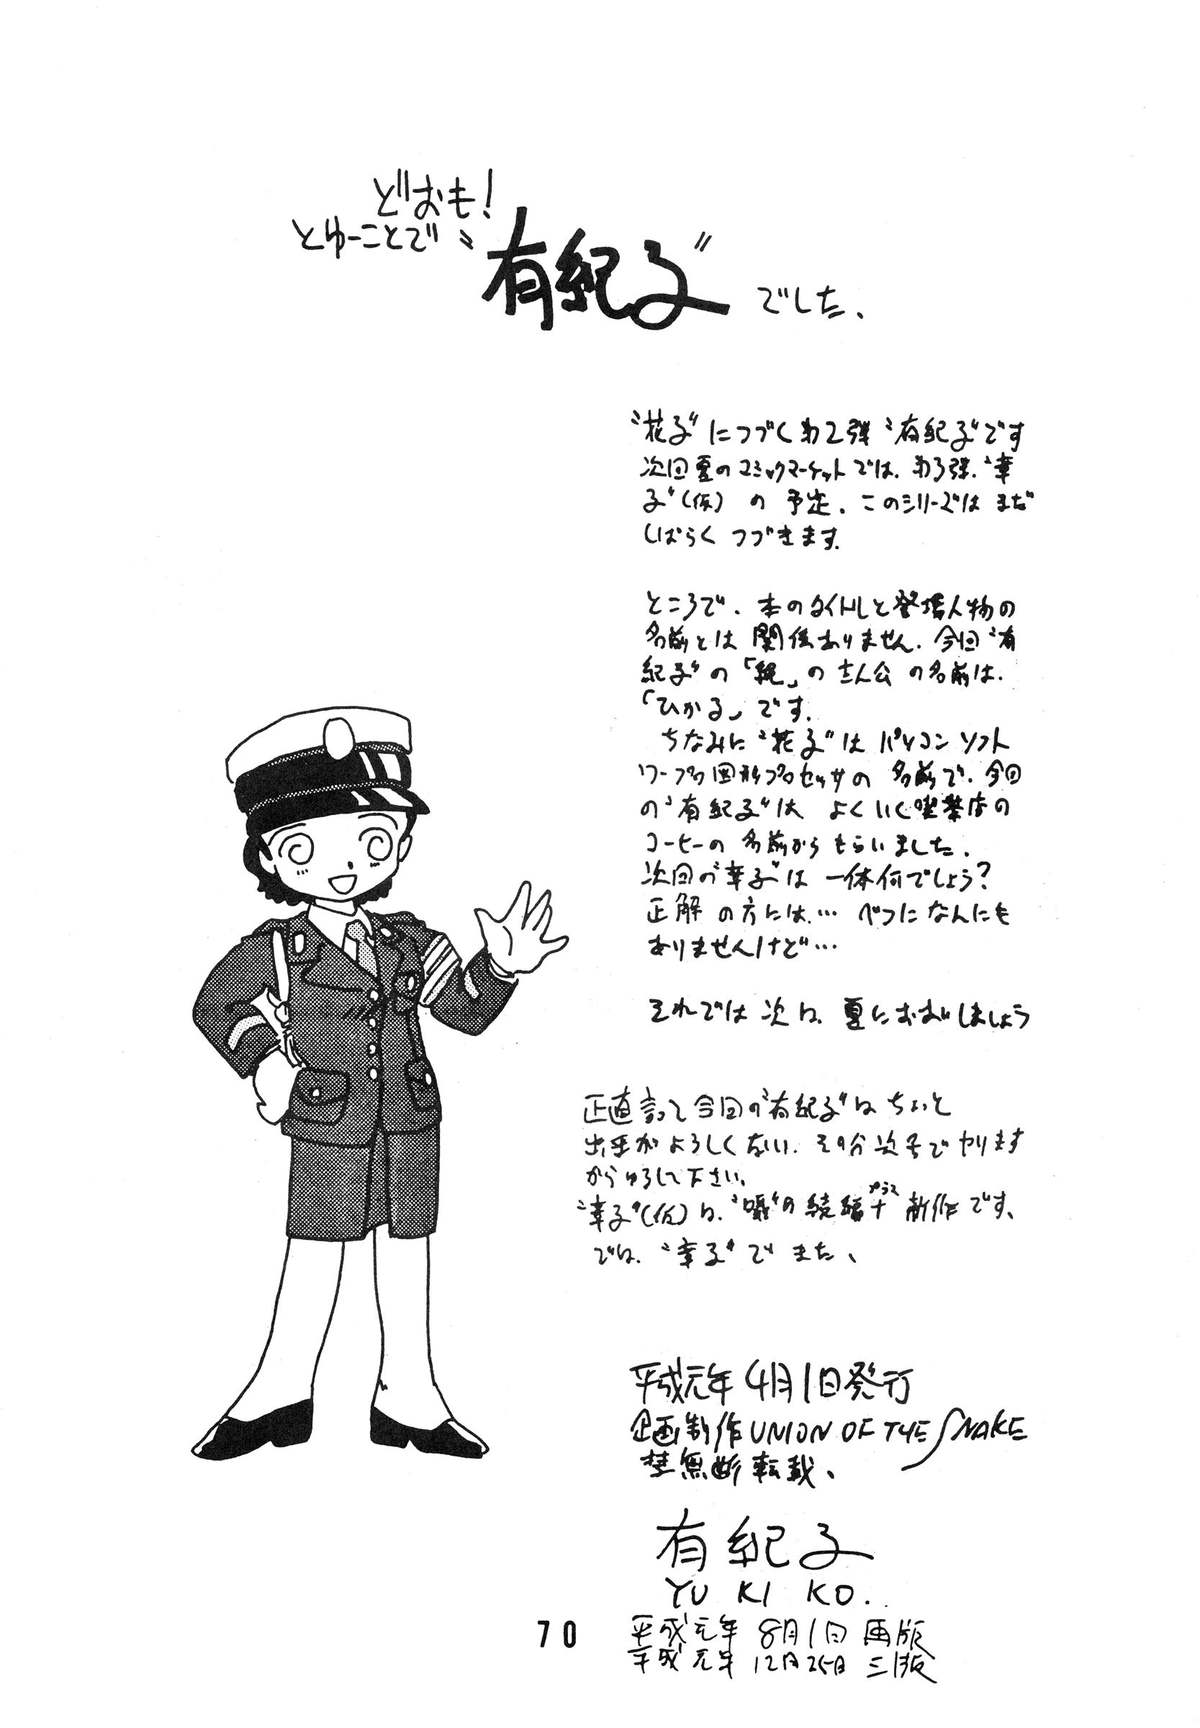 どおも!
とゆーことで
"有紀子"でした、
"花子"につづく第2弾"有紀子"です
次回夏のコミックマーケットでは、第3弾、"幸
子"(仮)の予定、このシリーズはまだ
しばらくつづきます.
ところで、本のタイトルと登場人物の
名前とは関係ありません、今回"有
紀子"の「縄」の主人公の名前は、
「ひかる」です.
ちなみに"花子"はパソコンソフト
ワープロ図形プロセッサの名前で、今回
の"有紀子"はよくいく喫茶店の
コーヒーの名前からもらいました.
次回の"幸子"は一体何でしょう?
正解の方には…べつになんにも
ありませんけど…
それでは次は、夏におあいしましょう
正直言って今回の"有紀子"はちょいと
出来がよろしくない、その分次号でヤリます
からゆるして下さい。
"幸子"(仮)は、の続編+プラス新作です、
では、"幸子"でまた、
平成元年4月1日発行
企画制作UNION OF THE SNAKE
禁無断転載、
有紀子
YU KI KO.
平成元年8月1日再版
平成元年12月25日三版
70